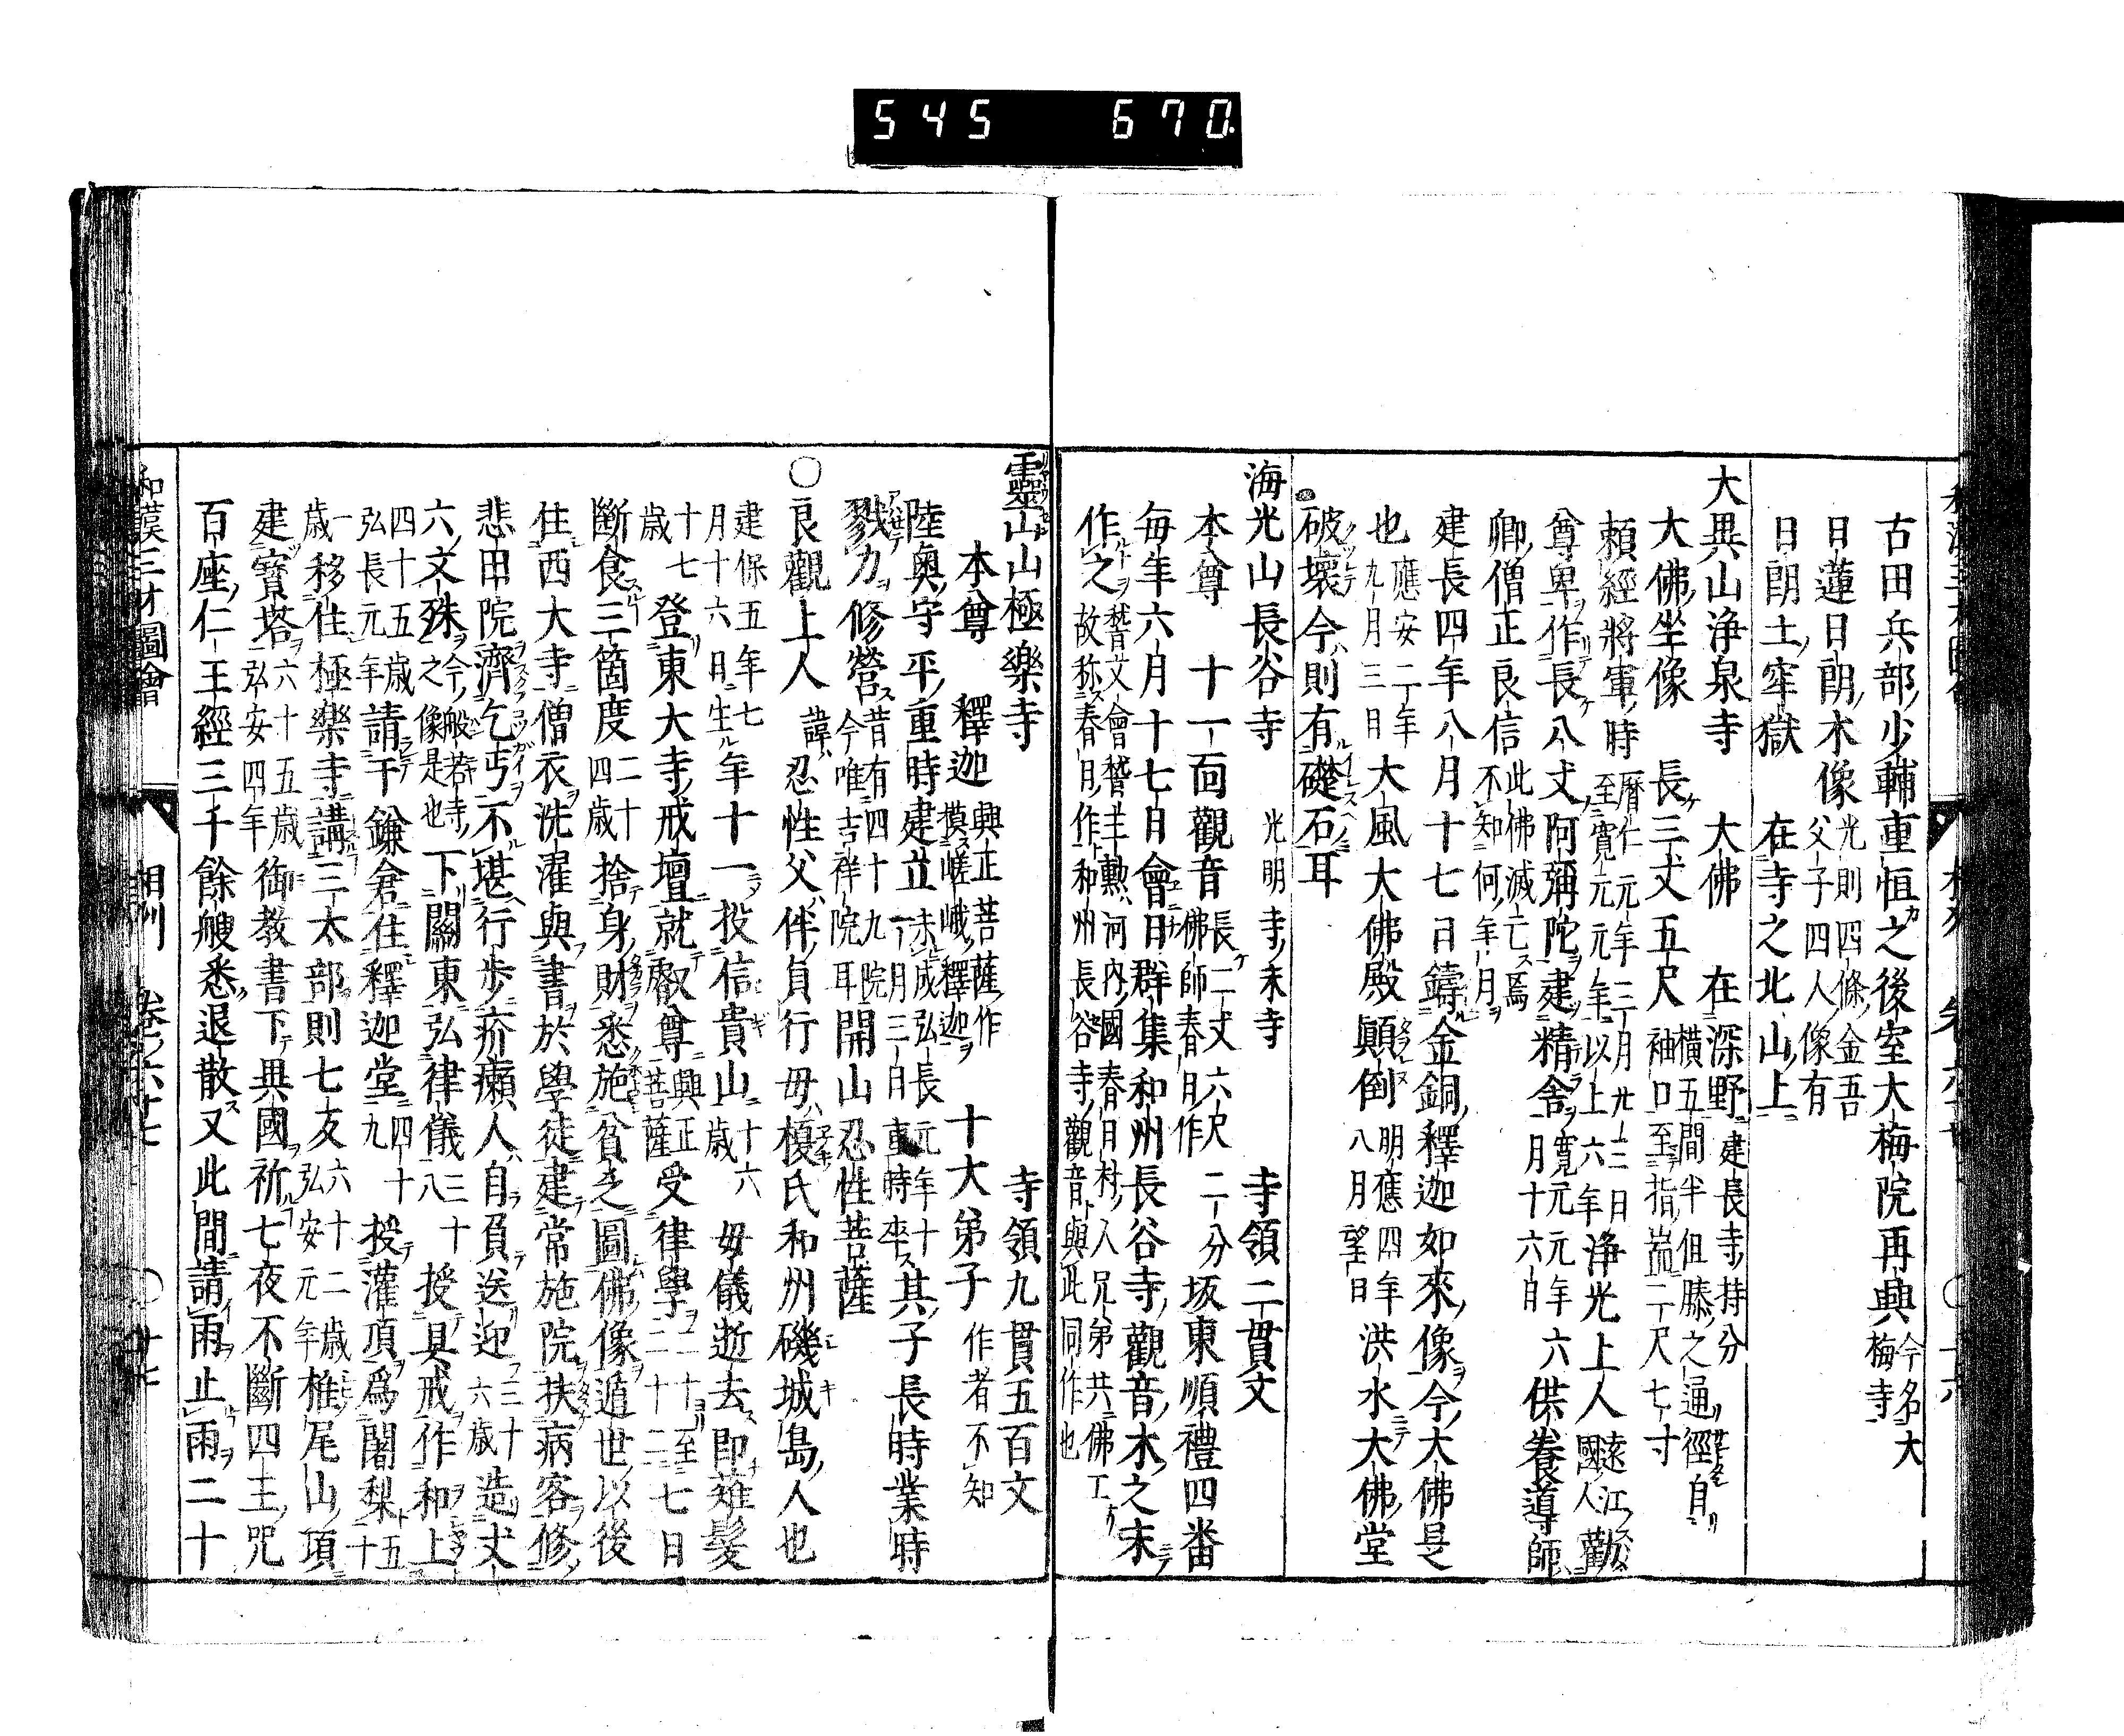 545 670
古田兵部少輔重恒之後室大梅院再興今名大梅寺
日蓮日朗木像光則四條金吾父子四人像有
日朗土窂獄　在寺之北山上
大異山浄泉寺　大佛　在深野建長寺持分
大佛坐像　長三丈五尺横五間半但膝之通徑自袖口至指端二尺七寸
頼經將軍時暦仁元年三月廿三日至寛元元年以上六年浄光上人遠江國人勸
尊卑作長八丈阿彌陀建精舍寛元元年六月十六自供養導師
卿僧正良信此佛滅亡焉不知何年月
建長四年八月十七日鑄金銅釋迦如來像今大佛是
也應安二年九月三日大風大佛殿顛倒明應四年八月望日洪水大佛堂
破壞今則有礎石耳
海光山長谷寺　光明寺末寺　寺領二貫文
本尊　十一面觀音長二丈六尺二分佛師春日作坂東順禮四番
毎年六月十七日會日群集和州長谷寺觀音木之末
作之稽文會稽主勲河内國春日村人兄弟共佛工故称春日作和州長谷寺觀音與此同作也
靈山山極樂寺　寺領九貫五百文
本尊　釋迦興正菩薩作摸嵯峨釋迦　十大弟子作者不知
陸奥守平重時建立未成弘長元年十一月三日重時卒其子長時業時
戮力修營昔有四十九院今唯吉祥院耳開山忍性菩薩
○良觀上人　諱忍性父伴貞行母榎氏和州磯城島人也
建保五年七月十六日生年十一投信貴山十六歳母儀逝去即薙髮
十七歳登東大寺戒壇就叡尊興正菩薩受律學二十至二十二七日
斷食三箇度二十四歳捨身財悉施貧乏圖佛像遁世以後
住西大寺僧衣洗濯與書於學徒建常施院扶病客修
悲田院濟乞丐不堪行歩疥癩人自負送迎三十六歳造丈
六文殊今般若寺之像是也下關東弘律儀三十八授具戒作和上
四十五歳弘長元年請于鎌倉住釋迦堂四十九投灌頂爲闍梨五十
一歳移住極樂寺講三大部則七友六十二歳弘安元年椎尾山頂
建寶塔六十五歳弘安四年御教書下異國祈七夜不斷四王咒
百座仁王經三千餘艘悉退散又此間請雨止雨二十
和漢三才圖會　相州　卷之六十七　○廿七